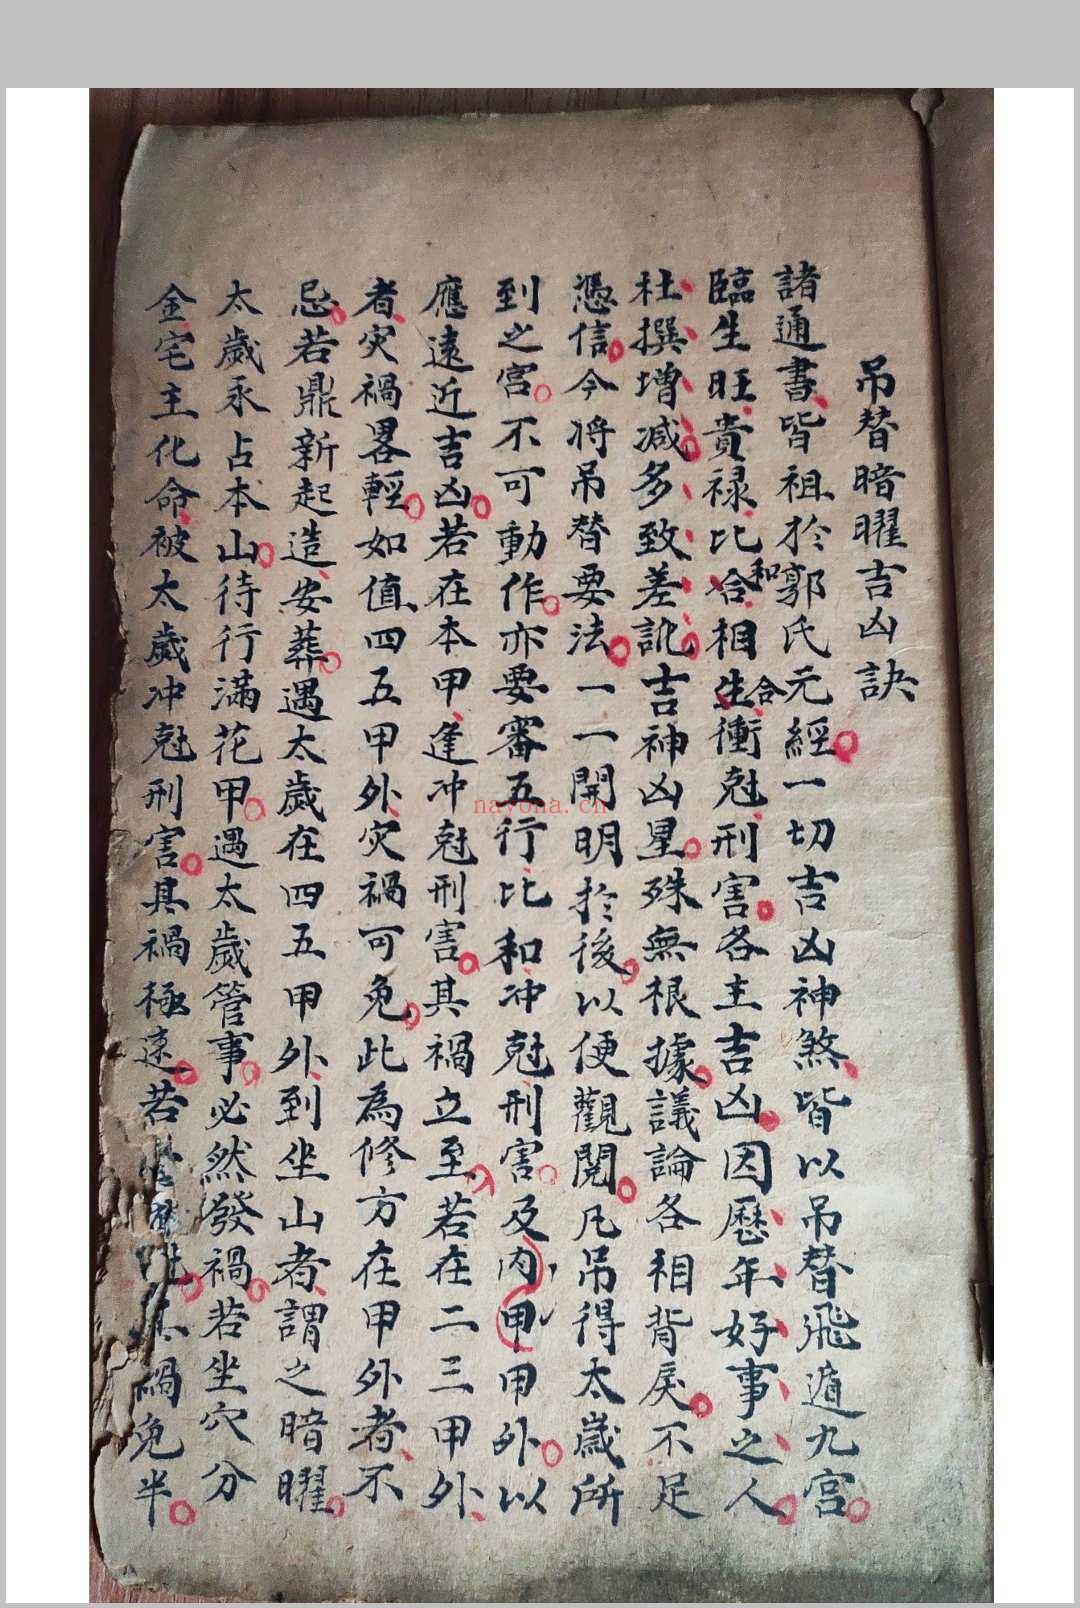 吊替暗曜吉凶訣
諸通書皆祖於郭氏元經一切吉凶神煞皆以吊替飛遁九宮
臨生旺貴祿比合和相生合衝尅刑害各主吉凶因歷年好事之人
杜撰增減多致差訛吉神凶星殊無根據議論各相背戾不足
憑信今將吊替要法一一開明於後以便觀閱凡吊得太歲所
到之宮不可動作亦要審五行比和冲尅刑害及內甲甲外以
應遠近吉凶若在本甲逢冲尅刑害其禍立至若在二三甲外
者灾禍畧輕如值四五甲外灾禍可免此為修方在甲外者不
忌若鼎新起造安葬遇太歲在四五甲外到坐山者謂之暗曜
太歲永占本山待行滿花甲遇太歲管事必然發禍若坐穴分
金宅主化命被太歲冲尅刑害其禍極速若禍免半
nayona.cn